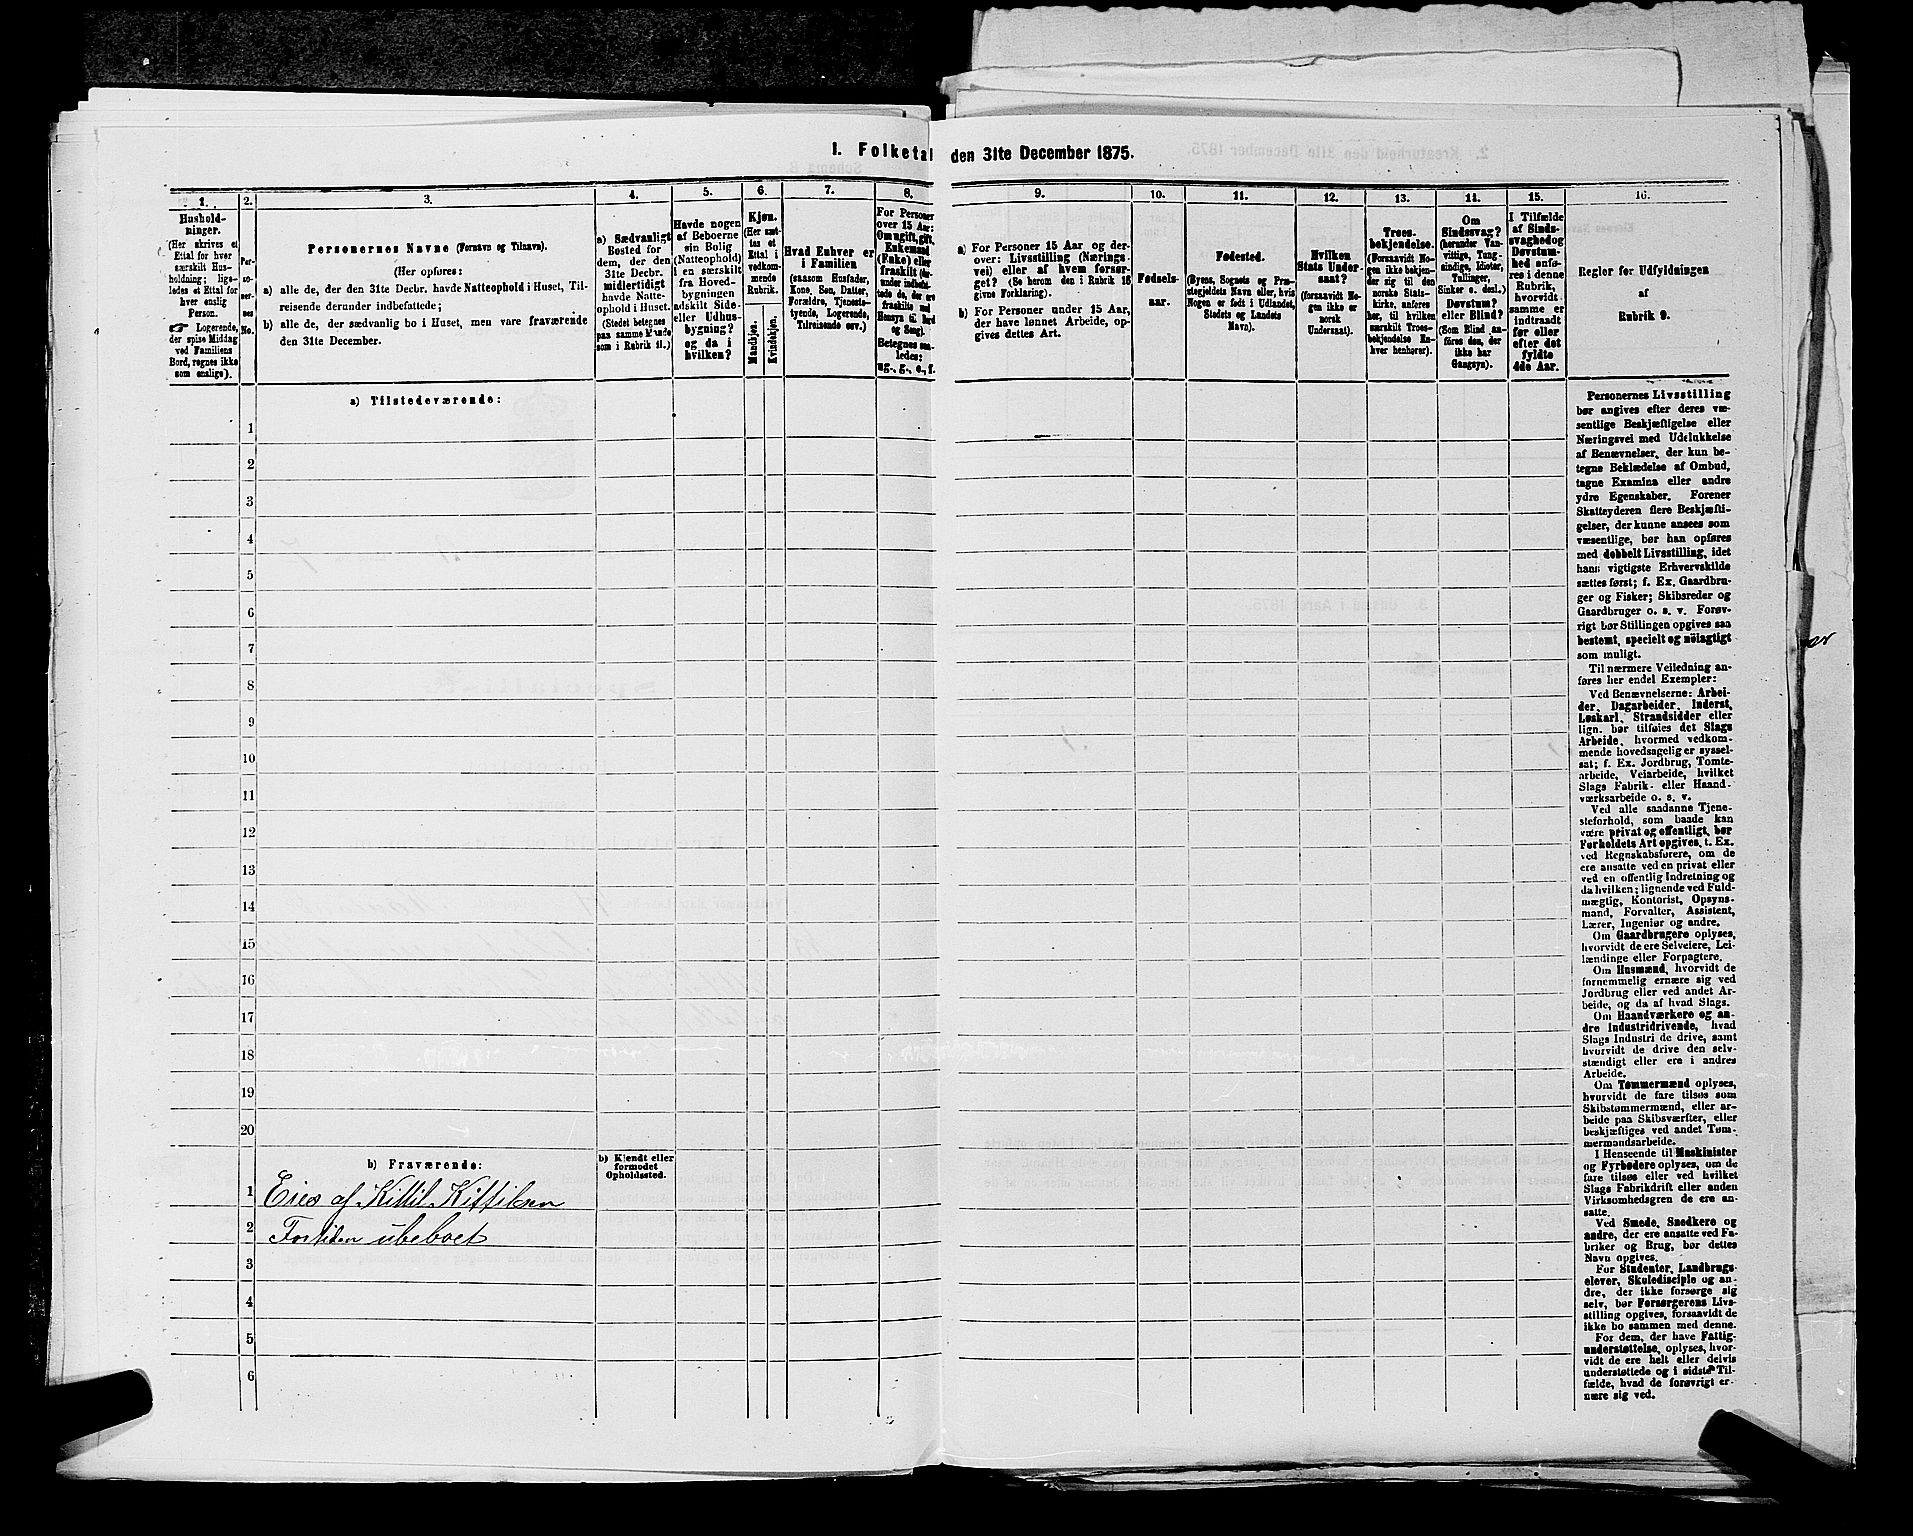 I. Folketal den 31te December 1875.
1.
Hushold-
ninger.
(Her skrives et
Ettal for hver
særskilt Hus-
holdning; lige-
ledes et Ettal for
hver enslig
Person.
☞ Logerende,
der spise Middag
ved Familiens
Bord, regnes ikke
som enslige).
2.
Per-
so-
ner-
nes
No.
3.
Personernes Navne (Fornavn og Tilnavn).
(Her opføres:
a) alle de, der den 31te Decbr. havde Natteophold i Huset, Til-
reisende derunder indbefattede;
b) alle de, der sædvanlig bo i Huset, men vare fraværende
den 31te December.
4.
a) Sædvanligt
Bosted for
dem, der den
31te Decbr.
midlertidigt
havde Natte-
ophold i Huset.
(Stedet betegnes
paa samme Maade
som i Rubrik 11.)
5.
Havde nogen
af Beboerne
sin Bolig
(Natteophold)
i en særskilt
fra Hoved-
bygningen
adskilt Side-
eller Udhus-
bygning?
og da i
hvilken?
6.
Kjøn.
(Her sæt-
tes et
Ettal i
vedkom-
mende
Rubrik.
Mandkjøn.
Kvindekjøn.
7.
Hvad Enhver er
i Familien
(saasom Husfader,
Kone, Søn, Datter,
Forældre, Tjeneste-
tyende, Logerende,
Tilreisende osv.)
8.
For Personer
over 15 Aar:
Om ugift, gift,
Enkemand
(Enke) eller
fraskilt (der-
under indbefat-
tede de, der ere
fraskilte med
Hensyn til Bord
og Seng).
Betegnes saa-
ledes:
ug., g., e., f.
9.
a) For Personer 15 Aar og der-
over: Livsstilling (Nærings-
vei) eller af hvem forsør-
get? (Se herom den i Rubrik 16
givne Forklaring).
b) For Personer under 15 Aar,
der have lønnet Arbeide, op-
gives dettes Art.
10.
Fødsels-
aar.
11.
Fødested.
(Byens, Sognets og Præ-
stegjeldets Navn eller, hvis
Nogen er født i Udlandet,
Stedets og Landets
Navn).
12.
Hvilken
Stats Under-
saat?
(forsaavidt No-
gen ikke er
norsk
Undersaat).
13.
Troes-
bekjendelse.
(Forsaavidt No-
gen ikke bekjen-
der sig til den
norske Stats-
kirke, anføres
her, til hvilken
særskilt Troes-
bekjendelse En-
hver henhører).
14.
Om
Sindssvag?
(herunder Van-
vittige, Tung-
sindige, Idioter,
Tullinger,
Sinker o. desl.)
Døvstum?
eller Blind?
(Som Blind an-
føres den, der
ikke har
Gangsyn).
15.
I Tilfælde
af Sinds-
svaghed og
Døvstum-
hed anfø-
res i denne
Rubrik,
hvorvidt
samme er
indtraadt
før eller
efter det
fyldte
4de Aar.
16.
Regler for Udfyldningen
af
Rubrik 9.
a) Tilstedeværende:
1
2
3
4
5
6
7
8
9
10
11
12
13
14
15
16
17
18
19
20
b) Fraværende:
b) Kjendt eller
formodet
Opholdssted.
1 Eies af Kittil Kittilsen
2 For tiden ubeboet
3
4
5
6
Personernes Livsstilling
bør angives efter deres væ-
sentlige Beskjæftigelse eller
Næringsvei med Udelukkelse
af Benævnelser, der kun be-
tegne Beklædelse af Ombud,
tagne Examina eller andre
ydre Egenskaber. Forener
Skatteyderen flere Beskjæfti-
gelser, der kunne ansees som
væsentlige, bør han opføres
med dobbelt Livsstilling, idet
hans vigtigste Erhvervskilde
sættes først; f. Ex. Gaardbru-
ger og Fisker; Skibsreder og
Gaardbruger o. s. v. Forøv-
rigt bør Stillingen opgives saa
bestemt, specielt og nöiagtigt
som muligt.
Til nærmere Veiledning an-
føres her endel Exempler:
Ved Benævnelserne: Arbei-
der, Dagarbeider, Inderst,
Løskarl, Strandsidder eller
lign. bør tilføies det Slags
Arbeide, hvormed vedkom-
mende hovedsagelig er syssel-
sat; f. Ex. Jordbrug, Tomte-
arbeide, Veiarbeide, hvilket
Slags Fabrik- eller Haand-
værksarbeide o. s. v.
Ved alle saadanne Tjene-
steforhold, som baade kan
være privat og offentligt, bør
Forholdets Art opgives, f. Ex.
ved Regnskabsførere, om de
ere ansatte ved en privat eller
ved en offentlig Indretning og
da hvilken; lignende ved Fuld-
mægtig, Kontorist, Opsyns-
mand, Forvalter, Assistent,
Lærer, Ingeniør og andre.
Om Gaardbrugere oplyses,
hvorvidt de ere Selveiere, Lei-
lændinge eller Forpagtere.
Om Husmænd, hvorvidt de
fornemmelig ernære sig ved
Jordbrug eller ved andet Ar-
beide, og da af hvad Slags.
Om Haandværkere og an-
dre Industridrivende, hvad
Slags Industri de drive, samt
hvorvidt de drive den selv-
stændigt eller ere i andres
Arbeide.
Om Tømmermænd oplyses,
hvorvidt de fare tilsøs som
Skibstømmermænd, eller ar-
beide paa Skibsværfter, eller
beskjæftiges ved andet Tøm-
mermandsarbeide.
I Henseende til Maskinister
og Fyrbødere oplyses, om de
fare tilsøs eller ved hvilket
Slags Fabrikdrift eller anden
Virksomhedsgren de ere an-
satte.
Ved Smede, Snedkere og
andre, der ere ansatte ved Fa-
briker og Brug, bør dettes
Navn opgives.
For Studenter, Landbrugs-
elever, Skoledisciple og an-
dre, der ikke forsørge sig
selv, bør Forsørgerens Livs-
stilling opgives, forsaavidt de
ikke bo sammen med denne.
For dem, der have Fattig-
understøttelse, oplyses, hvor-
vidt de ere helt eller delvis
understøttede og i sidste Til-
fælde, hvad de forøvrigt er-
nære sig ved.